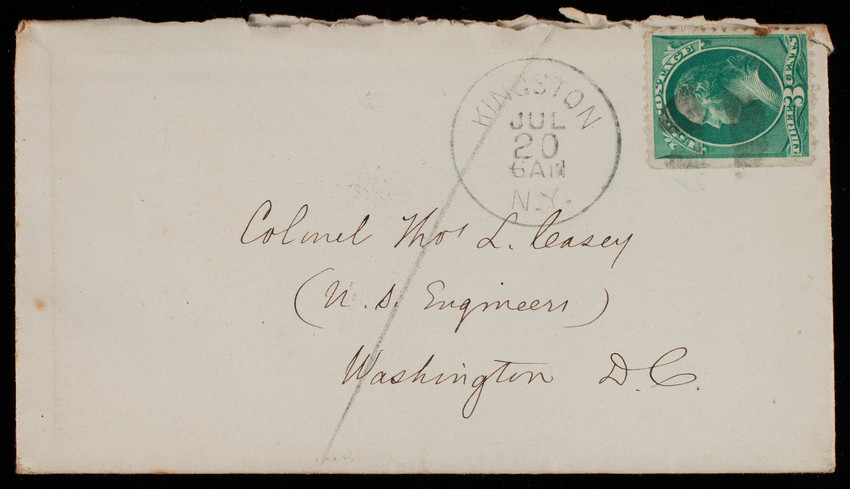 KINGSTON
JUL
20
6AM
N.Y.
U.S. POSTAGE
3
Colonel Thos L. Casey
(U.S. Engineers)
Washington D.C.